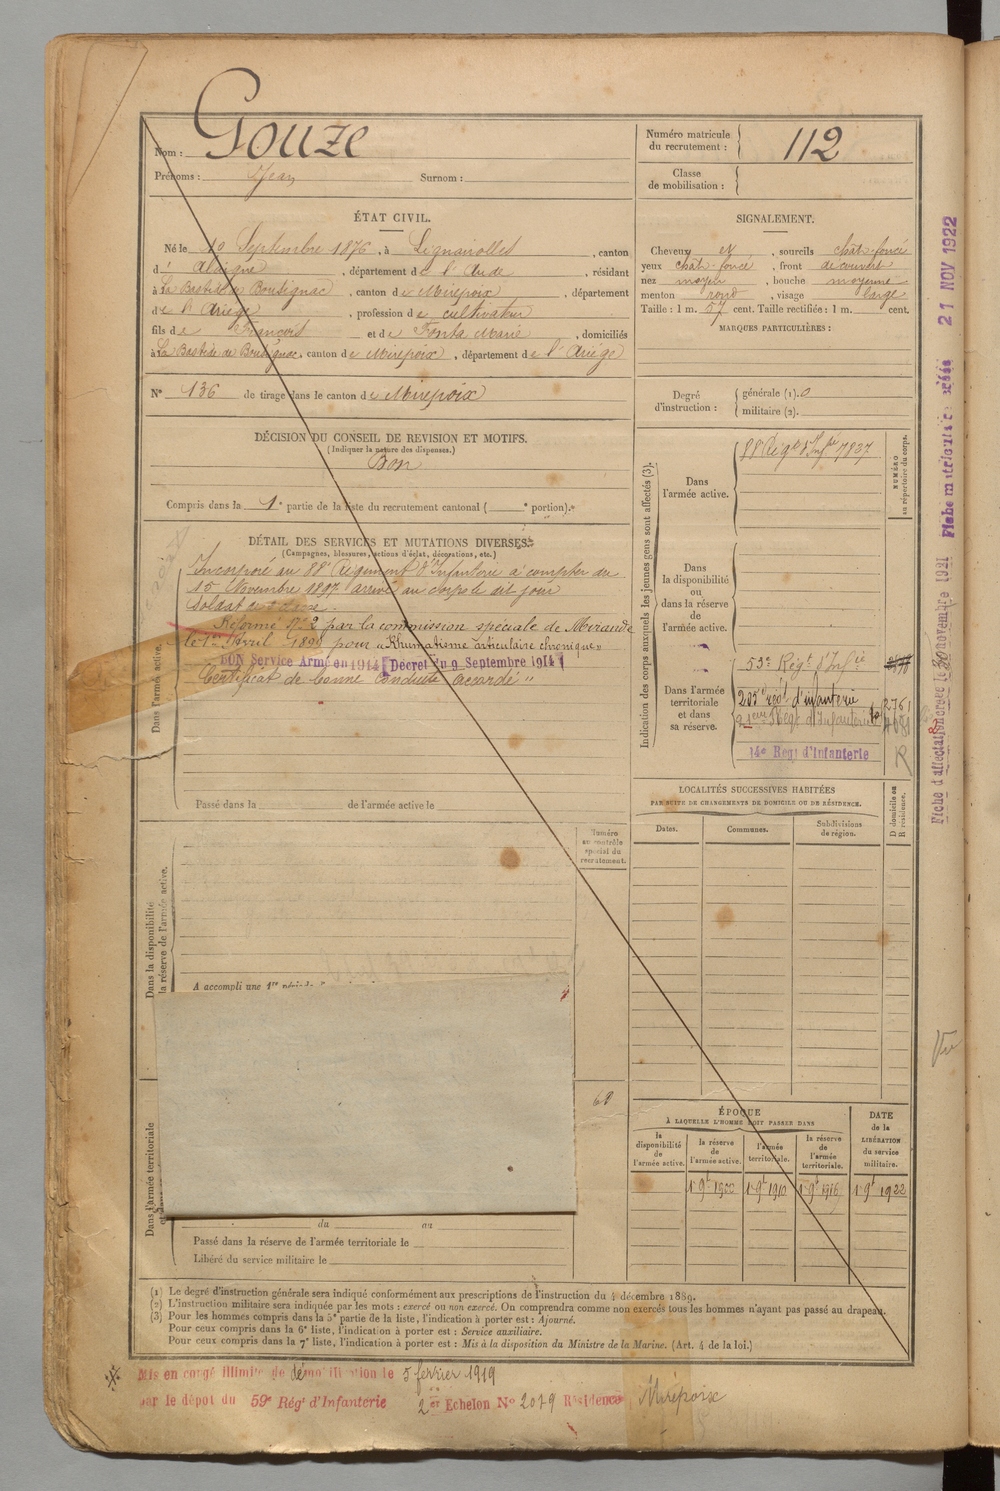 Nom : Gouze
Prénoms : Jean Surnom :
Numéro matricule du recrutement : 112
Classe de mobilisation :
ÉTAT CIVIL.
Né le 10 Septembre 1876, à Lignairolles, canton
d' Alaigne, département de l'Aude, résidant
à La Bastide de Bousignac, canton de Mirepoix, département
de l'Ariège, profession de cultivateur
fils de François et de Fonta Marie, domiciliés
à La Bastide de Bousignac, canton de Mirepoix, département de l'Ariège
N° 136 de tirage dans le canton de Mirepoix
SIGNALEMENT.
Cheveux et, sourcils chât-foncé
yeux chât-foncé, front découvert
nez moyen, bouche moyenne
menton rond, visage large
Taille : 1 m. 57 cent. Taille rectifiée : 1 m. cent.
MARQUES PARTICULIÈRES :
Degré d'instruction : générale (1). 0
militaire (2).
DÉCISION DU CONSEIL DE REVISION ET MOTIFS.
(Indiquer la nature des dispenses.)
Bon
Compris dans la 1e partie de la liste du recrutement cantonal ( e portion).
DÉTAIL DES SERVICES ET MUTATIONS DIVERSES.
(Campagnes, blessures, actions d'éclat, décorations, etc.)
Dans l'armée active.
Incorporé au 88e Régiment d'Infanterie à compter du
15 Novembre 1897 arrivé au corps le dit jour
Soldat de 2e classe.
Réformé N° 2 par la commission spéciale de Mirande
le 1er Avril 1898 pour "Rhumatisme articulaire chronique"
BON Service Armé en 1914 Décret du 9 Septembre 1914
Certificat de bonne conduite "accordé"
Passé dans la de l'armée active le
Indication des corps auxquels les jeunes gens sont affectés (3).
NUMÉRO au répertoire du corps.
Dans l'armée active.
88e Régt d'Infrie 7837
Dans la disponibilité ou dans la réserve de l'armée active.
Dans l'armée territoriale et dans sa réserve.
53e Régt d'Infie
205e regt d'infanterie 2761
Regt d'Infanterie
14e Regt d'Infanterie R
LOCALITÉS SUCCESSIVES HABITÉES
PAR SUITE DE CHANGEMENTS DE DOMICILE OU DE RÉSIDENCE.
Dates. Communes. Subdivisions de région. D domicile ou R résidence.
Numéro au contrôle spécial du recrutement.
Dans la disponibilité
la réserve de l'armée active.
A accompli une 1re
68
Dans l'armée territoriale
du au
Passé dans la réserve de l'armée territoriale le
Libéré du service militaire le
ÉPOQUE
À LAQUELLE L'HOMME DOIT PASSER DANS
la disponibilité de l'armée active.
la réserve de l'armée active.
l'armée territoriale.
la réserve de l'armée territoriale.
DATE de la LIBÉRATION du service militaire.
1er 9bre 1900 1er 9bre 1910 1er 9bre 1916 1er 9bre 1922
(1) Le degré d'instruction générale sera indiqué conformément aux prescriptions de l'instruction du 4 décembre 1889.
(2) L'instruction militaire sera indiquée par les mots : exercé ou non exercé. On comprendra comme non exercés tous les hommes n'ayant pas passé au drapeau.
(3) Pour les hommes compris dans la 5e partie de la liste, l'indication à porter est : Ajourné.
Pour ceux compris dans la 6e liste, l'indication à porter est : Service auxiliaire.
Pour ceux compris dans la 7e liste, l'indication à porter est : Mis à la disposition du Ministre de la Marine. (Art. 4 de la loi.)
Mis en congé illimité de démobilisation le 5 février 1919
par le dépôt du 59e Régt d'Infanterie 2e Echelon N° 2079 Résidence Mirepoix
Fiche matricule créée 21 NOV 1922
Fiche d'affectation novembre 1921
Vu